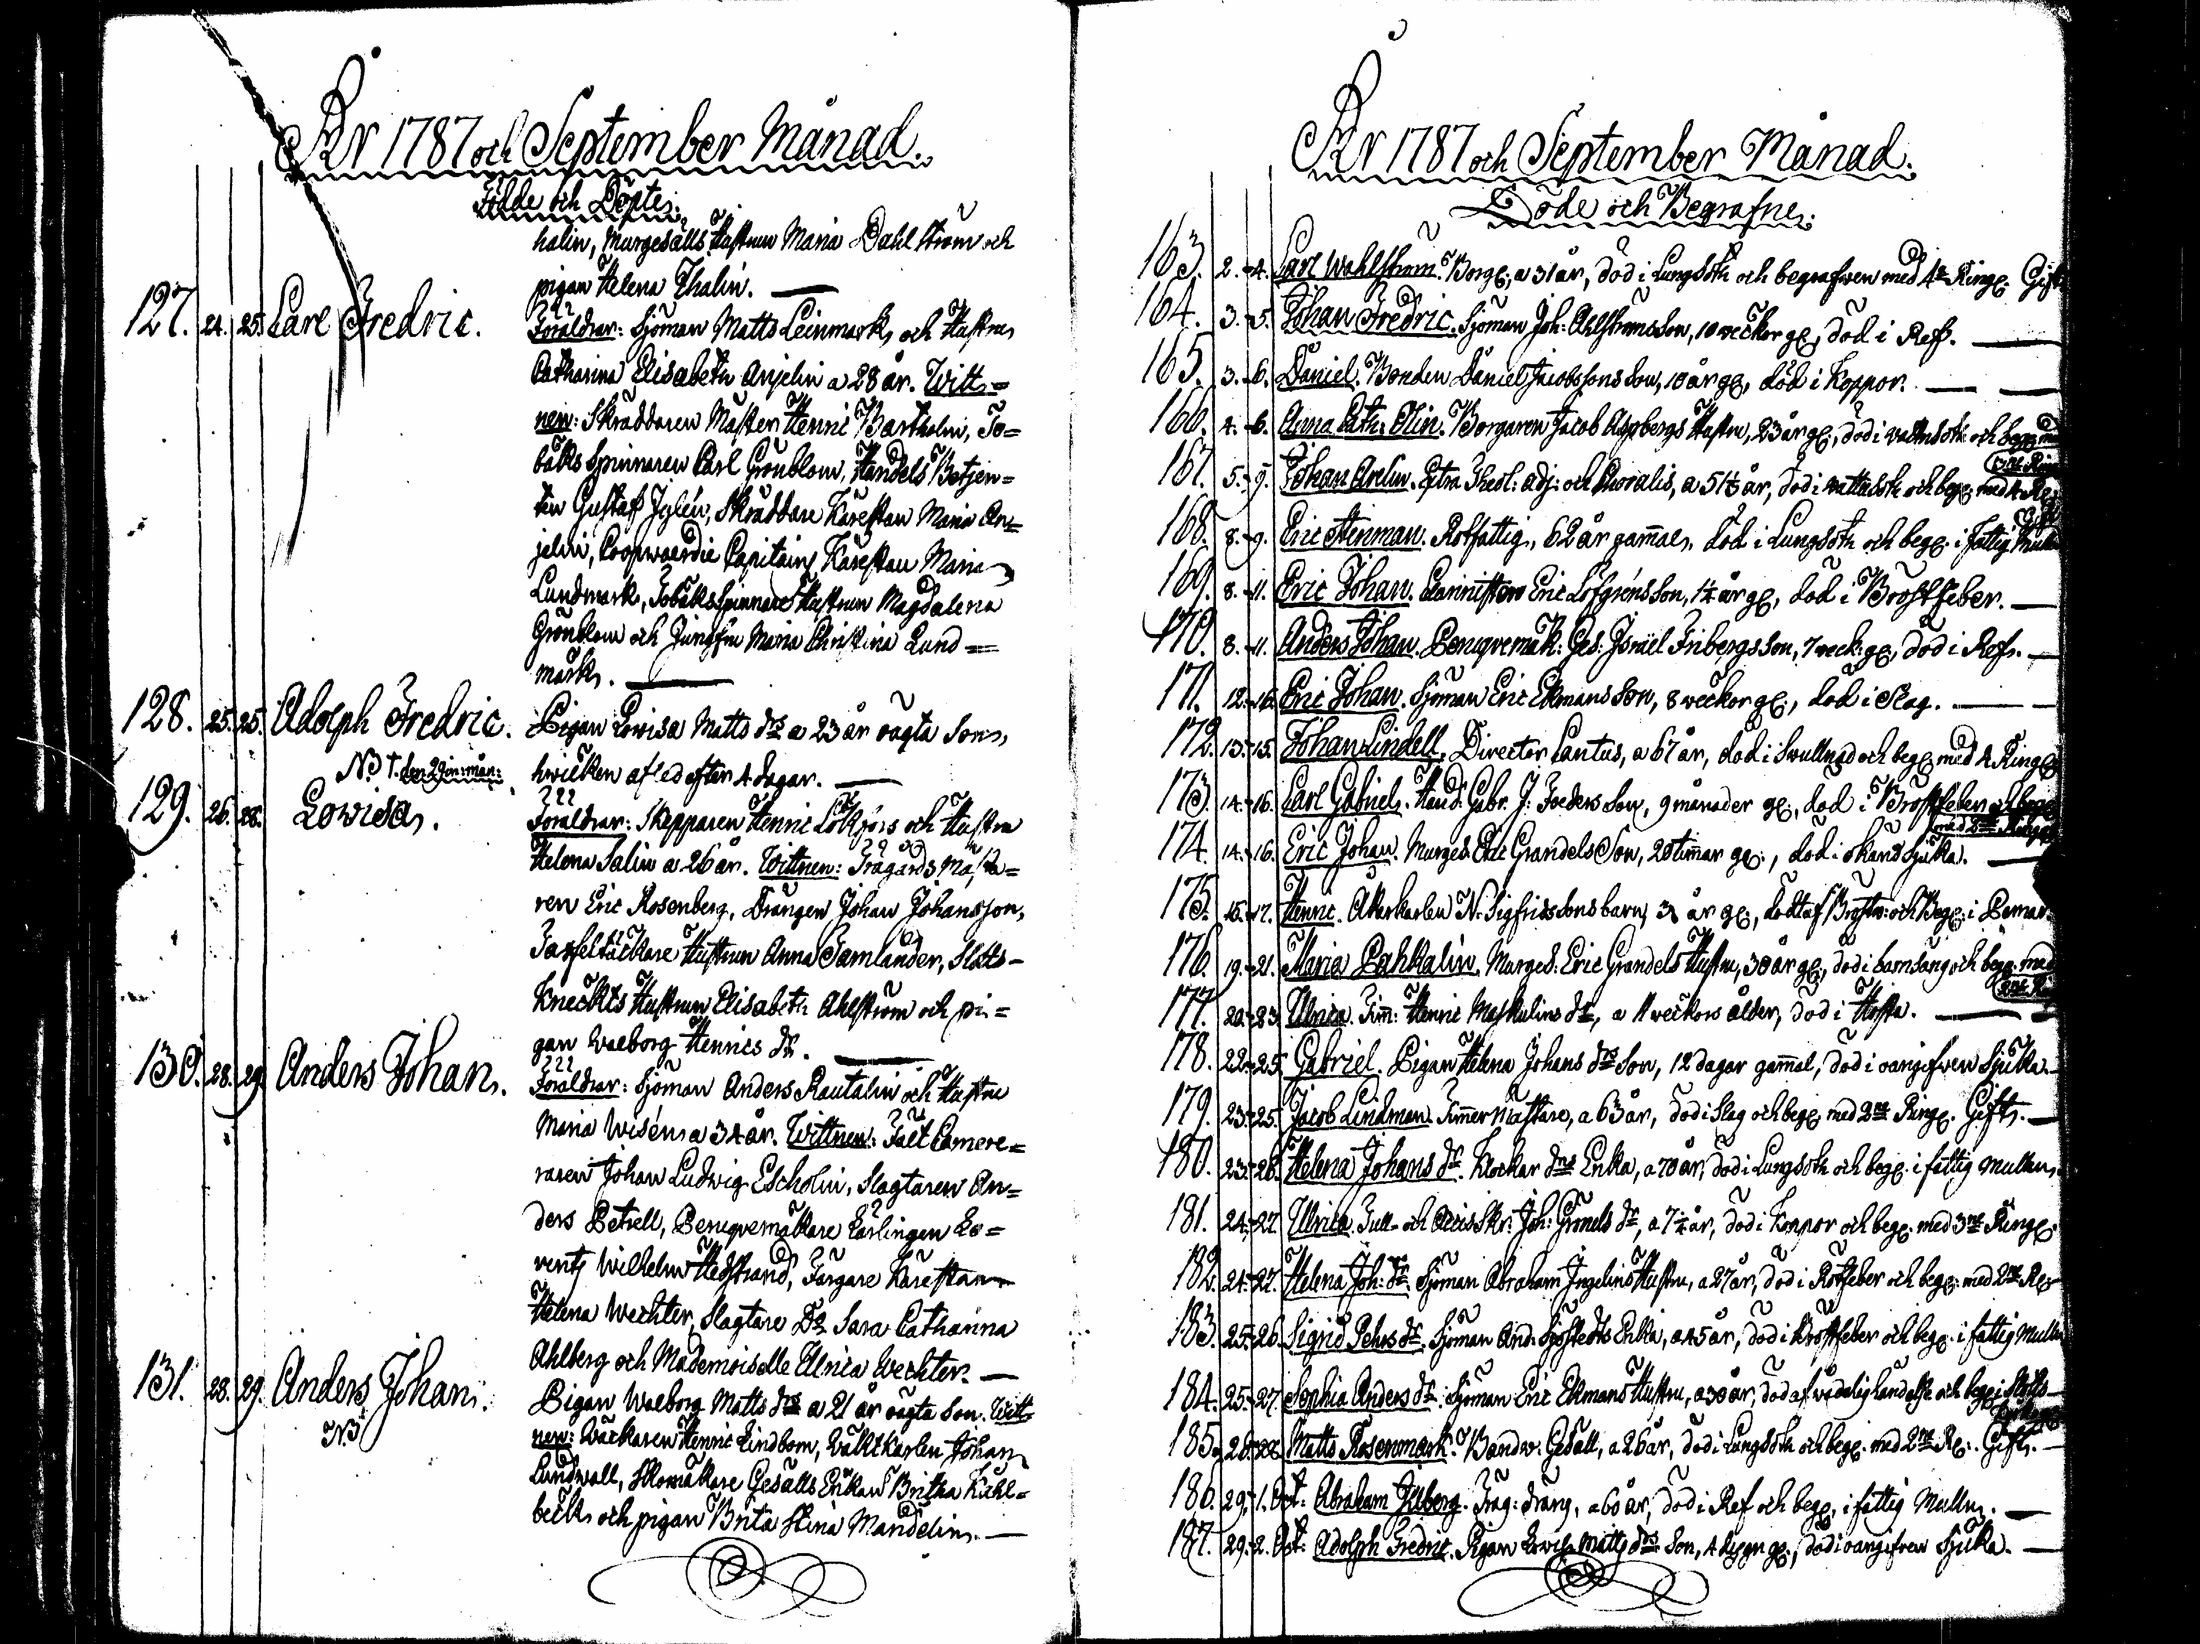 År 1787 och September Månad.
Födde och Döpte.
halin, Murgesälls Hustrun Maria Dahlström och
pigan Helena Thalin.
127. 24. 25. Carl Fredric. Föräldrar: Sjöman Matts Leinmark, och Hustru
Catharina Elisabeth Anjelin a 28 år. Witt=
nen: Skräddaren Mäster Henric Bartholin, To=
baks Spinnaren Carl Grönblom, Handels Betjen=
ten Gustaf Jylén, Skräddare Kärestan Maria An=
jelin, Coopwaerdie Capitains Kärestan Maria
Lundmark, Tobaks Spinnare Hustrun Magdalena
Grönblom och Jungfru Maria Christina Lund=
mark.
128. 25. 25. Adolph Fredric. Pigan Lovisa Matts dr a 23 år oägta Son,
No. †. den 29 in: mån: hwilken afled efter 4 dagar.
129. 26. 28. Lovisa. Föräldrar: Skepparen Henric och Hustru
Helena Salin a 26 år. Wittnen: Trägårds Mästa=
ren Eric Rosenberg, Drängen Johan Johansson,
Hustrun Anna Tamlander, Slotts=
Knechts Hustrun Elisabeth Ahlström och pi=
gan Walborg Henrics dr.
130. 28. 29. Anders Johan. Föräldrar: Sjöman Anders Rautalin och Hustru
Maria Wisén a 34 år. Wittnen: Fält Camere=
raren Johan Ludwig Escholin, Slagtaren An=
ders Petrell, Peruqvemakare Lärlingen Lo=
rentz Wilhelm Hedstrand, Färgare Kärestan
Helena Wechter, Slagtare Dr Sara Catharina
Ahlberg och Mademoiselle Ulrica Wechter.
131. 28. 29. Anders Johan. Pigan Walborg Matts dr a 21 år oägta Son. Witt=
NB nen: Henric Lindbom, Johan
Lundwall, Skomakare Gesälls Enkan Britha Kähl=
beck och pigan Brita Stina Mandelin.
År 1787 och September Månad.
Döde och Begrafne.
163. 2. 4. Carl Wahlström. Borg: a 31 år, död i Lungsoth och begrafwen med 4de Ring: Gift
164. 3. 5. Johan Fredric. Sjöman Joh: Ahlströms Son, 10 veckor gl, död i Ref.
165. 3. 6. Daniel. Bonden Daniel Jacobssons Son, 10 år gl, död i Koppor.
166. 4. 6. Anna Cath: Olin. Borgaren Jacob Aspbergs Hustru, 23 år gl, död i Vattusoth och begr med
167. 5. 9. Johan Arelin. Theol: adj: och Choralis, a 51½ år, död i Vattusoth och begr: med 4.
168. 8. 9. Eric Stenman. Rotfattig, 62 år gammal, död i Lungsoth och begr: i fattig
169. 8. 11. Eric Johan. Eric Löfgréns Son, 1¼ år gl, död i Bröstfeber.
170. 8. 11. Anders Johan. Peruqvemak: Ges: Israël Fribergs Son, 7 veck: gl, död i Ref.
171. 12. 16. Eric Johan. Sjöman Eric Ekmans Son, 8 veckor gl, död i Slag.
172. 13. 15. Johan Lindell. Director Cantus, a 67 år, död i Svullnad och begr: med 4. Ring:
173. 14. 16. Carl Gabriel. Hand: Gabr. J: Foeders Son, 9 månader gl, död i Bröstfeber och begr
174. 14. 16. Eric Johan. Murges: Eric Grandels Son, 20 timmar gl, död i okänd Sjuka.
175. 15. 17. Henric. Åkarkarlen N: Sigfridssons barn, 3 år gl, och Begr: i Pemar.
176. 19. 21. Maria Pahkalin. Murges: Eric Grandels Hustru, 30 år gl, död i barnsäng och begr: med
177. 20. 23. Ulrica. Tim: Henric Maskulins dr, a 11 veckors ålder, död i Hosta.
178. 22. 25. Gabriel. Pigan Helena Johans dr Son, 12 dagar gammal, död i oangifwen Sjuka.
179. 23. 25. Jacob Lindman. Timmer Mästare, a 63 år, död i Slag och begr: med 2ne Ring: Gift.
180. 23. 28. Helena Johans dr. Enka, a 70 år, död i Lungsoth och begr: i fattig Mullen.
181. 24. 27. Ulrica. Tull- och Acciss Skr: Joh: dr, a 7¼ år, död i Koppor och begr: med 3ne Ring:
182. 24. 27. Helena Joh: dr. Sjöman Abraham Ingelins Hustru, a 27 år, död i Rötfeber och begr: med 2ne R:
183. 25. 26. Sigrid Pehrs dr. Sjöman And: Sjöstedts Enka, a 45 år, död i Bröstfeber och begr: i fattig Mullen
184. 25. 27. Sophia Anders dr. Sjöman Eric Ekmans Hustru, a 30 år, död af wådelig händelse och begr: i Slotts
185. 26. 28. Matts Rosenmark. Gesäll, a 26 år, död i Lungsoth och begr: med 2ne R:. Gift.
186. 29. 1. Oct: Abraham Jilberg. Träg: dräng, a 60 år, död i Ref och begr: i fattig Mullen.
187. 29. 2. Oct: Adolph Fredric. Pigan Lovisa Matts drs Son, 4 dygn gl, död i oangifwen Sjuka.